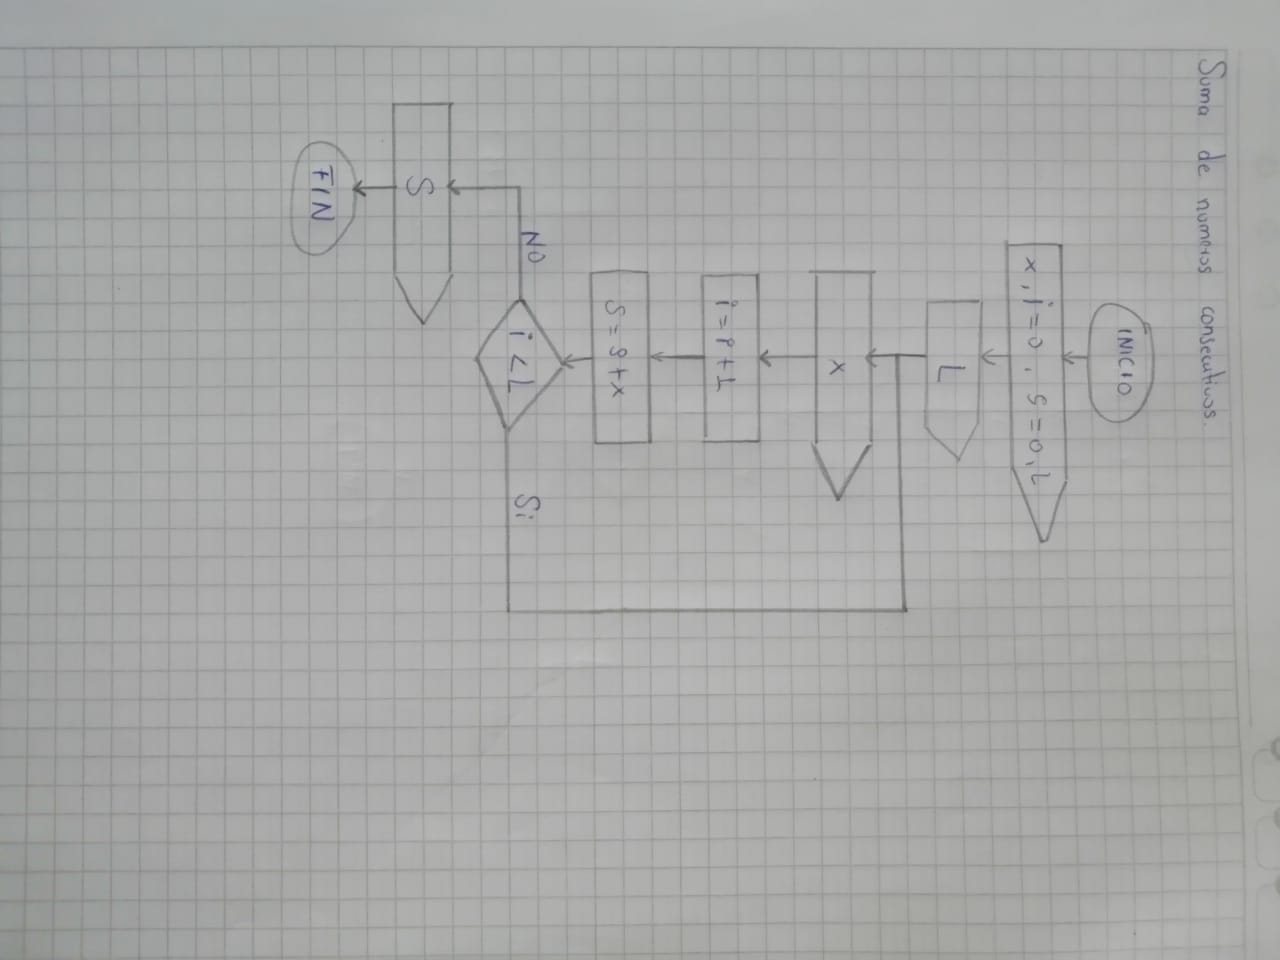 Suma de numeros consecutivos.
INICIO
x, i=0, S=0, L
L
x
i=i+1
S=S+x
i<L
NO
Si
S
FIN